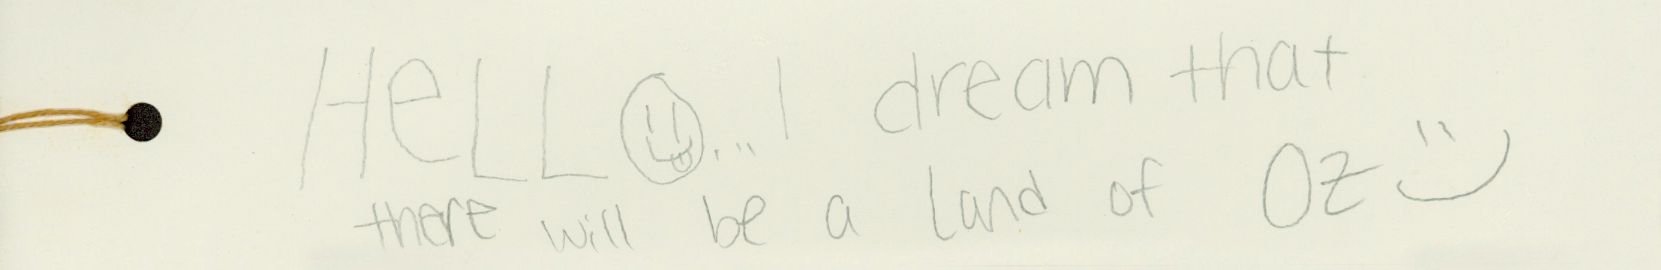 HeLLO... I dream that
there will be a land of OZ